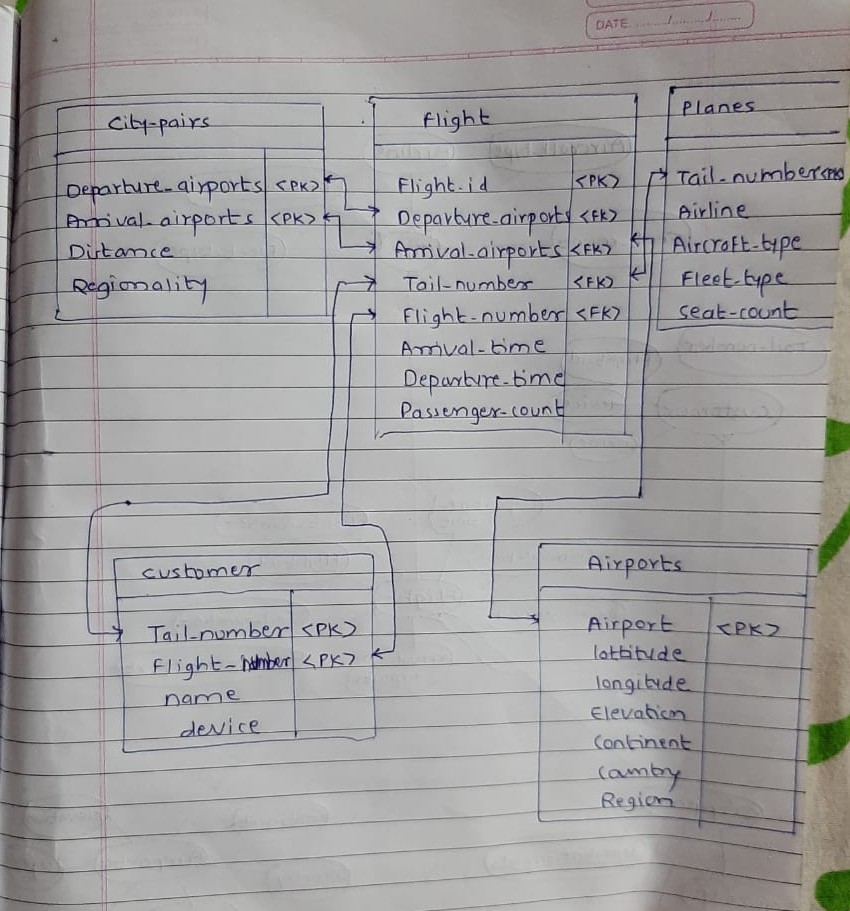 DATE ......./......./.......
City-pairs
Departure_airports <PK>
Arrival_airports <PK>
Distance
Regionality
Flight
Flight_id <PK>
Departure_airports <FK>
Arrival_airports <FK>
Tail_number <FK>
Flight_number <FK>
Arrival_time
Departure_time
Passenger_count
Planes
Tail_number <PK>
Airline
Aircraft_type
Fleet_type
Seat_count
customer
Tail_number <PK>
Flight_number <PK>
name
device
Airports
Airport <PK>
lattitude
longitude
Elevation
Continent
Country
Region